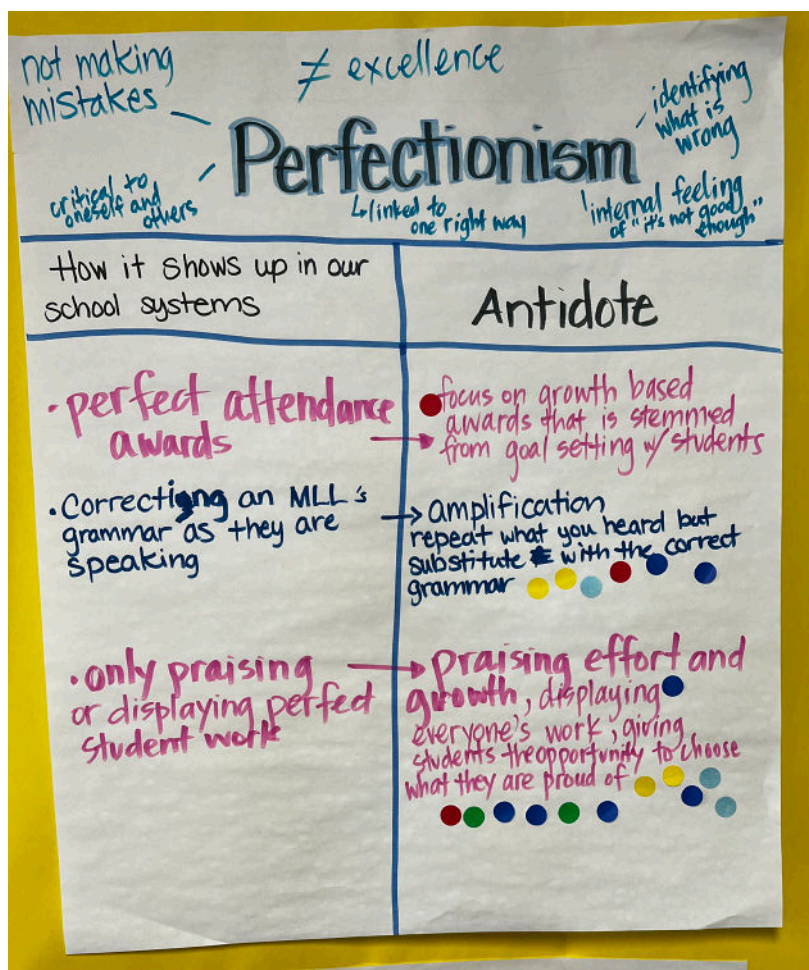 not making
mistakes
≠ excellence
identifying
what is
wrong
Perfectionism
critical to
oneself and
others
↳ linked to
one right way
internal feeling
of "it's not good
enough"
How it shows up in our
school systems
Antidote
• perfect attendance
awards
focus on growth based
awards that is stemmed
from goal setting w/ students
• Correcting an MLL's
grammar as they are
speaking
→ amplification
repeat what you heard but
substitute with the correct
grammar
• only praising
or displaying perfect
student work
→ praising effort and
growth, displaying
everyone's work, giving
students the opportunity to choose
what they are proud of